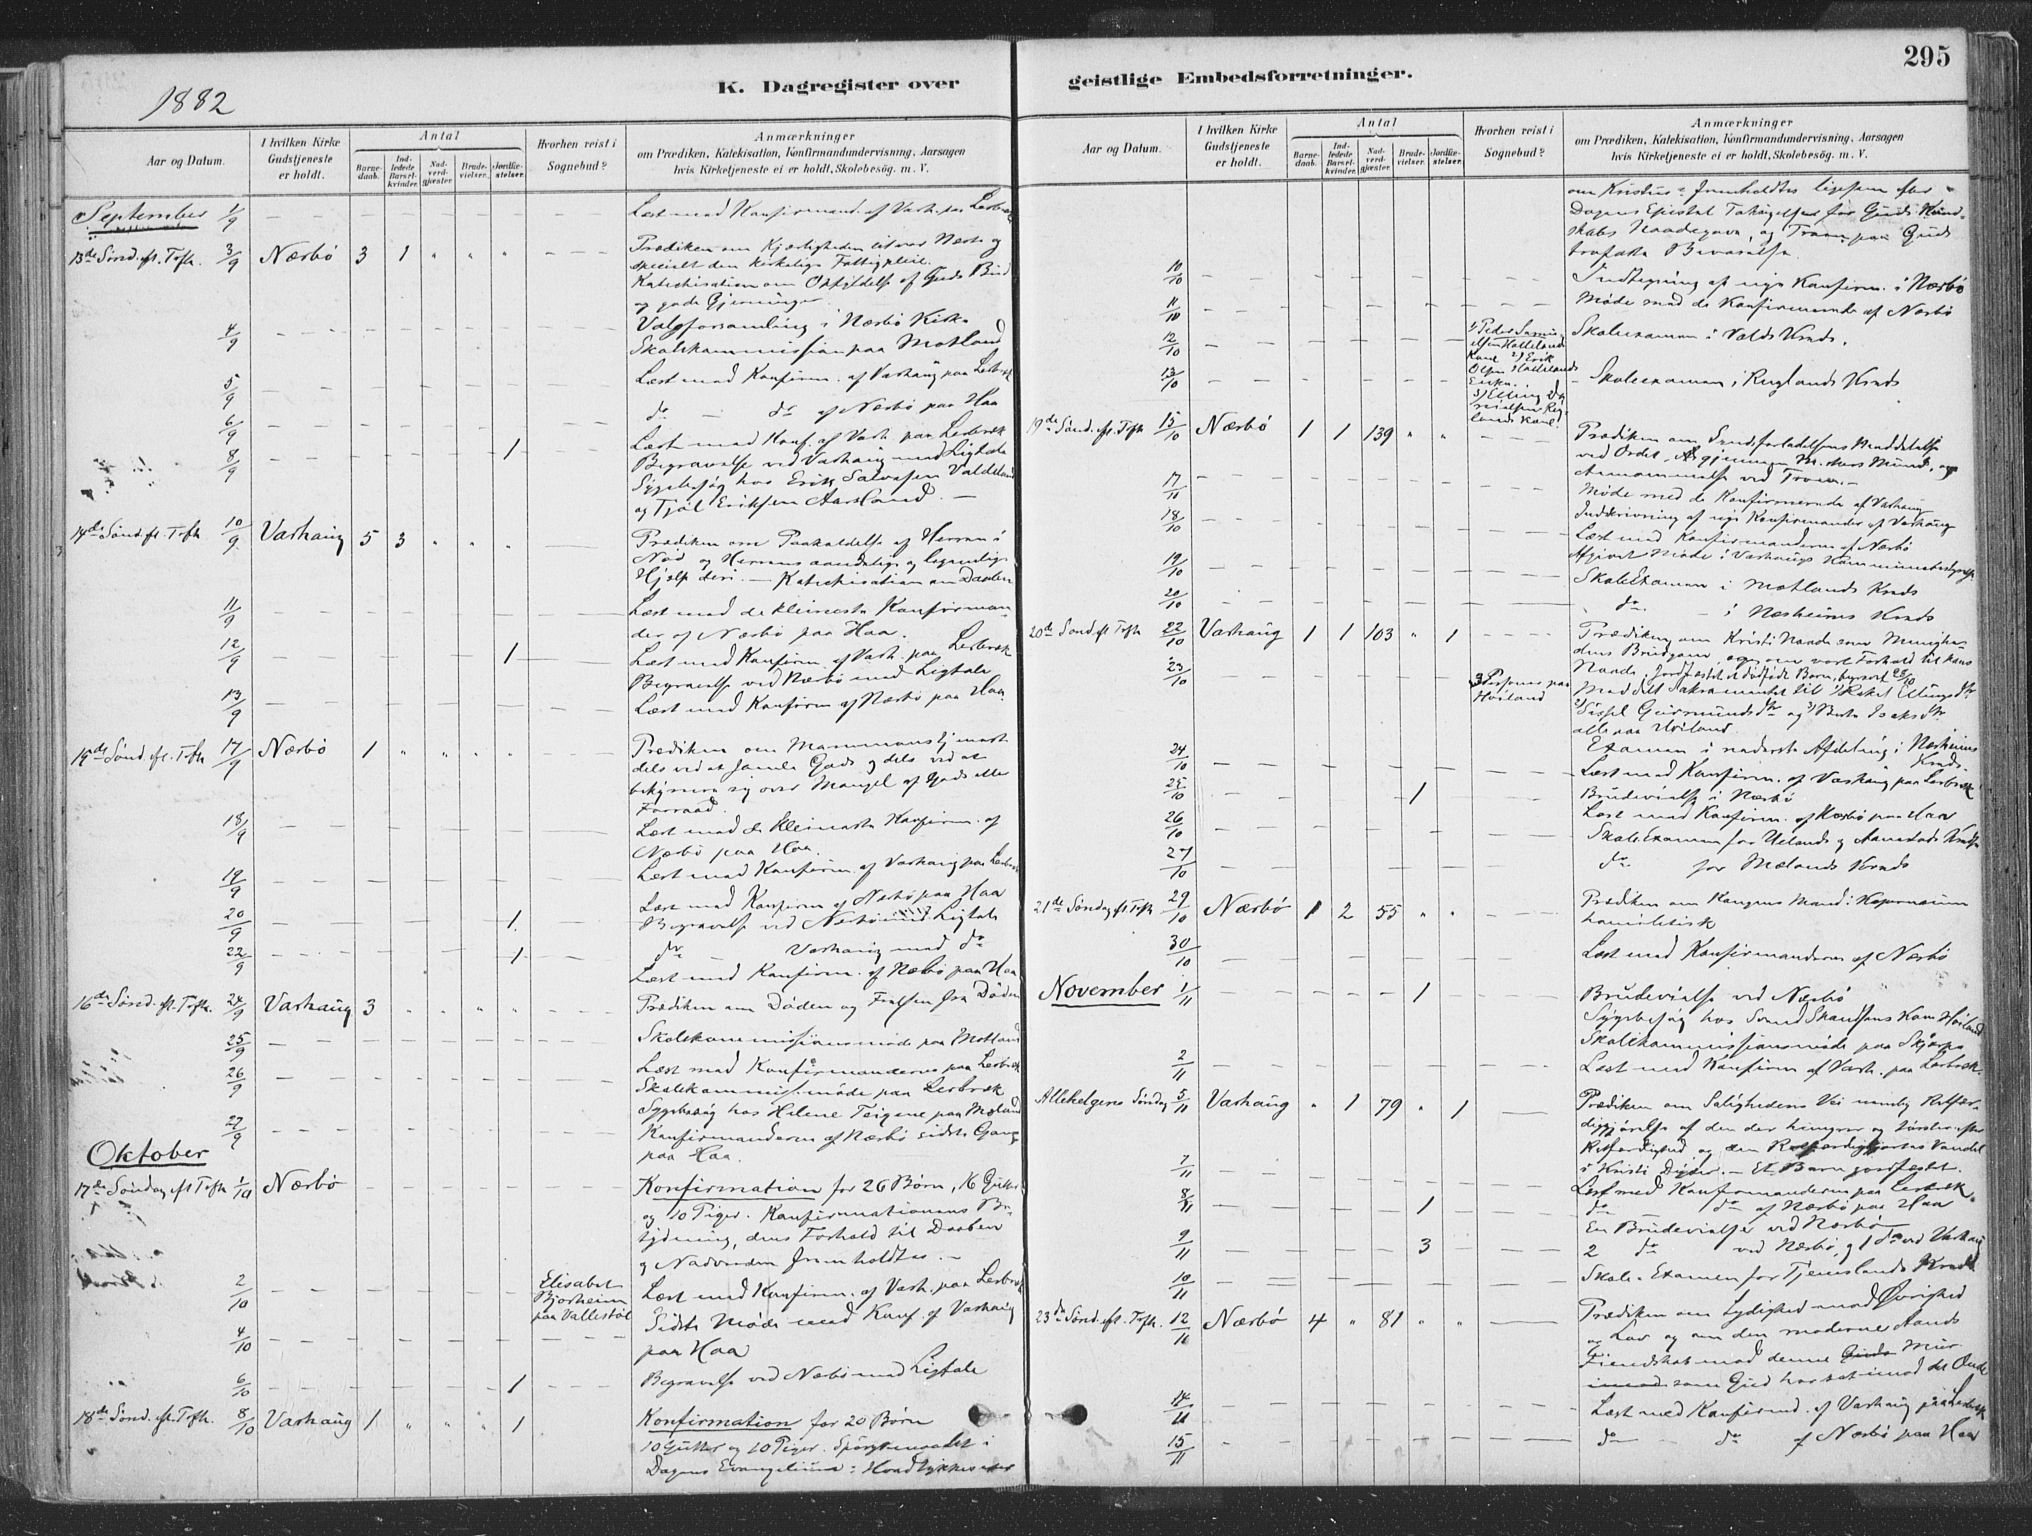 295
K. Dagregister over geistlige Embedsforretninger.
1882
Aar og Datum.
I hvilken Kirke Gudstjeneste er holdt.
Antal
Barne-daab.
Ind-ledede Barsel-kvinder.
Nad-verd-gjæster.
Brude-vielser.
Jordfæ-stelser.
Hvorhen reist i Sognebud?
Anmærkninger
om Prædiken, Katekisation, Konfirmandundervisning, Aarsagen
hvis Kirketjeneste ei er holdt, Skolebesög. m. V.
September 1/9 Læst med Konfirmand. af Varh. paa Lerbræk
13de Sønd. eft. Trefh. 3/9 Nærbö 3 1 " " " Prædiken om Kjærligheden til vor Næste og
specielt den kirkelige Fattigpleie.
Katechisation om Opfyldelse af Guds Bud
og gode Gjerninger.
4/9 Valgforsamling i Nærbö Kirke
Skolekommission paa Motland
5/9 Læst med Konfirm. af Varhaug paa Lerbræk
6/9 do — do af Nærbö paa Haa
8/9 1 Læst med Konf. af Varh. paa Lerbræk
Begravelse ved Varhaug med Ligtale
Sygebesög hos Erik Salvesen Valdeland
og Tjöl Eriksen Aarsland. —
14de Sönd. eft. Trefh 10/9 Varhaug 5 3 " " " Prædiken om Paakaldelse af Herren i
Nöd og Herrens aandelige og legemlige
Hjælp deri. — Katechisation om Daaben
11/9 Læst med de kleineste Konfirman-
der af Nærbö paa Haa.
12/9 1 Læst med Konfirm. af Varh. paa Lerbræk
Begravelse ved Nærbö med Ligtale
13/9 Læst med Konfirm af Nærbö paa Haa
15de Sönd. eft. Trefh 17/9 Nærbö 1 " " " Prædiken om Mammonstjeneste
dels ved at samle Gods og dels ved at
bekymre sig over Mangel af Gods eller
Forraad.
18/9 Læst med de kleineste Konfirm. af
Nærbö paa Haa.
19/9 Læst med Konfirm. af Varhaug paa Lerbræk
20/9 1 Læst med Konfirm af Nærbö paa Haa
Begravelse ved Nærbö med Ligtale
22/9 1 do — Varhaug med do
Læst med Konfirm. af Nærbö paa Haa
16de Sönd. eft. Trefh. 24/9 Varhaug 3 " " " Prædiken om Döden og Frelsen fra Döden
25/9 Skolekommissionsmöde paa Motland
26/9 Læst med Konfirmanderne paa Lerbræk
Skolekommiss.möde paa Lerbræk
Sygebesög hos Helene Teigene paa Mæland
27/9 Konfirmanderne af Nærbö sidste Gang
paa Haa.
Oktober
17de Söndag eft Trefh 1/10 Nærbö Konfirmation for 26 Börn, 16 Gutter
og 10 Piger. Konfirmationens Be-
tydning, dens Forhold til Daaben
og Nadverden Jrmholdtes. —
2/10 Elisabet
Bjorheim
paa Vallestöl
Læst med Konfirm. af Varh. paa Lerbræk
4/10 Sidste Möde med Konf. af Varhaug
paa Haa
6/10 1 Begravelse ved Nærbö med Ligtale
18de Sönd. eft. Trefh. 8/10 Varhaug 1 " " 1 Konfirmation for 20 Börn
10 Gutter og 10 Piger. Spörgsmaalet i
Dagens Evangelium: Hvad tykkes eder
Aar og Datum.
I hvilken Kirke Gudstjeneste er holdt.
Antal
Barne-daab.
Ind-ledede Barsel-kvinder.
Nad-verd-gjæster.
Brude-vielser.
Jordfæ-stelser.
Hvorhen reist i Sognebud?
Anmærkninger
om Prædiken, Katekisation, Konfirmandundervisning, Aarsagen
hvis Kirketjeneste ei er holdt, Skolebesög. m. V.
om Kristus: Jrmholdtes ligesom efter
Dagens Epistel Taksigelse for Guds Kund-
skabs Naadegave, og Troen paa Guds
trofaste Bevarelse
10/10 Indtegning af nye Konfirm. i Nærbö
11/10 Möde med de Konfirmerende af Nærbö
12/10 Skoleexamen i Volds Kreds.
13/10 Skoleexamen i Ruglands Kreds
19de Sönd. eft. Trefh 15/10 Nærbö 1 1 139 " " Prædiken om Syndsforladelsens Meddelelse
ved Ordet,
Annammelse ved Troen. —
17/10 Möde med de Konfirmerende af Varhaug
18/10 Indskrivning af nye Konfirmander af Varhaug
Læst med Konfirmanderne af Nærbö
Afgivet Möde i Varhaugs Kommunebestyrelse
19/10 SkoleExamen i Motlands Kreds
20/10 do — i Næsheims Kreds
20de Sönd eft Trefh 22/10 Varhaug 1 1 103 " 1 Prædiken om Kristi Naade som Menighe-
dens Brudgom, og om vort Forhold til hans
Naade. Jordfæstet et dödfödt Barn,
23/10 3 Personer paa
Höiland
Meddelt Sakramentet til 1) Rakel Ellingsdtr
2) Sissel Geirmundsdtr og 3) Berta Isaksdtr
alle paa Höiland.
24/10 Examen i nederste Afdeling i Næsheims
Kreds.
25/10 1 Læst med Konfirm. af Varhaug paa Lerbræk
Brudevielse i Nærbö
26/10 Læst med Konfirm. af Nærbö paa Haa
SkoleExamen for Uelands og Aanestads Kredse
27/10 do for Mælands Kreds
21de Söndag eft Trefh 29/10 Nærbö 1 2 55 " " Prædiken om Kongens Mand i Kapernaum
homiletisk
30/10 Læst med Konfirmanderne af Nærbö
November 1/11 1 Brudevielse ved Nærbö
Sygebesög hos Kone Höiland
Skolekommissionsmöde paa Skjærpe
2/11 Læst med Konfirm af Varh. paa Lerbræk.
Allehelgens Söndag 5/11 Varhaug " 1 79 " 1 Prædiken om Salighedens Vei nemlig Retfær-
diggjörelse af den der hungrer og törster efter
Retfærdighed og den Retfærdiggjortes Vandel
i Kristi Dyder. — Et Barn jordfæstet.
7/11 Læst med Konfirmanderne paa Lerbræk.
8/11 1 do — do af Nærbö paa Haa
En Brudevielse ved Nærbö
9/11 3 2 do ved Nærbö, og 1 do ved Varhaug
10/11 Skole-Examen for Tjemslands Kreds
23de Sönd. eft. Trefh. 12/11 Nærbö 4 " 81 " " Prædiken om Lydighed mod Övrighed
og Lov og om den moderne Aands
Fiendskab mod denne Guds Mur
imod som Gud har sat imod det Onde
14/11 Læst med Konfirmd. af Varhaug paa Lerbræk
15/11 do — do af Nærbö paa Haa